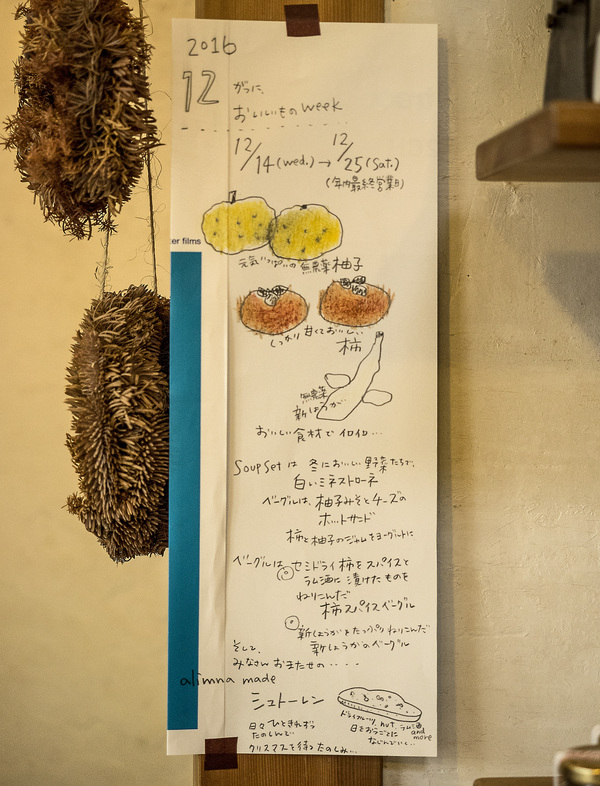 2016
12 がつに、
おいしいものweek
12/14(wed.)→12/25(Sat.)
(年内最終営業日)
ter films
元気いっぱいの無農薬柚子
しっかり甘くておいしい
柿
無農薬
新しょうが…
おいしい食材で イロイロ…
Soup Set は 冬においしい野菜たちで、
白いミネストローネ
ベーグルは、柚子みそとチーズの
ホットサンド
柿と柚子のジャムをヨーグルトに
ベーグルは
◎セミドライ柿をスパイスと
ラム酒に漬けたものを
ねりこんだ
柿スパイスベーグル
◎新しょうがをたっぷりねりこんだ
新しょうがのベーグル
そして、
みなさんおまたせの・・・・
alimna made
シュトーレン
ドライフルーツ, nut, ラム酒
and more
日をおうごとに
なじんでいく…
日々ひときれずつ
たのしんで
クリスマスを待つたのしみ…